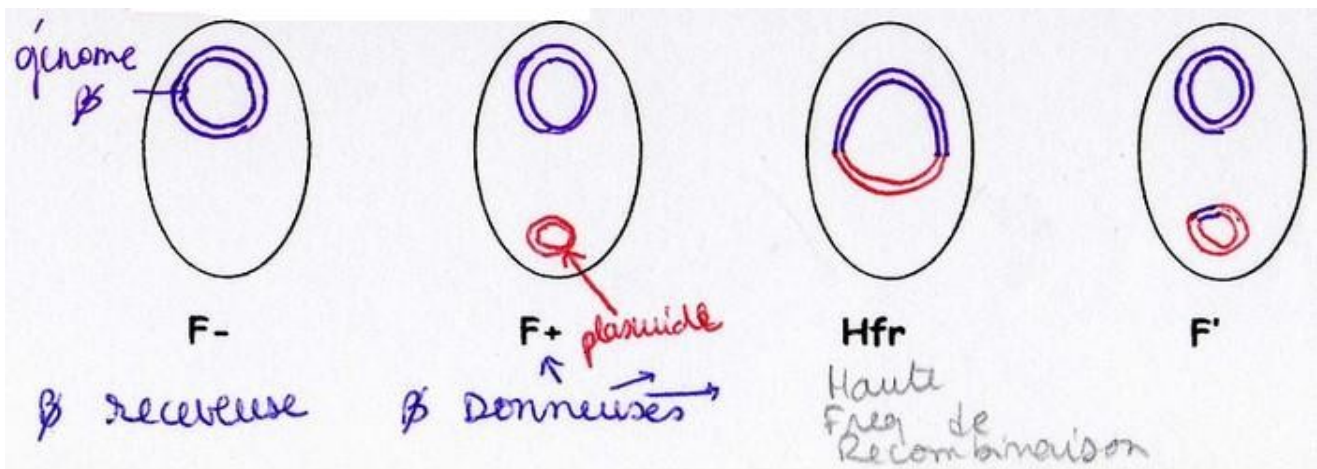 génome
β
F-
F+
plasmide
Hfr
F'
β receveuse
β Donneuses
Haute
Freq de
Recombinaison